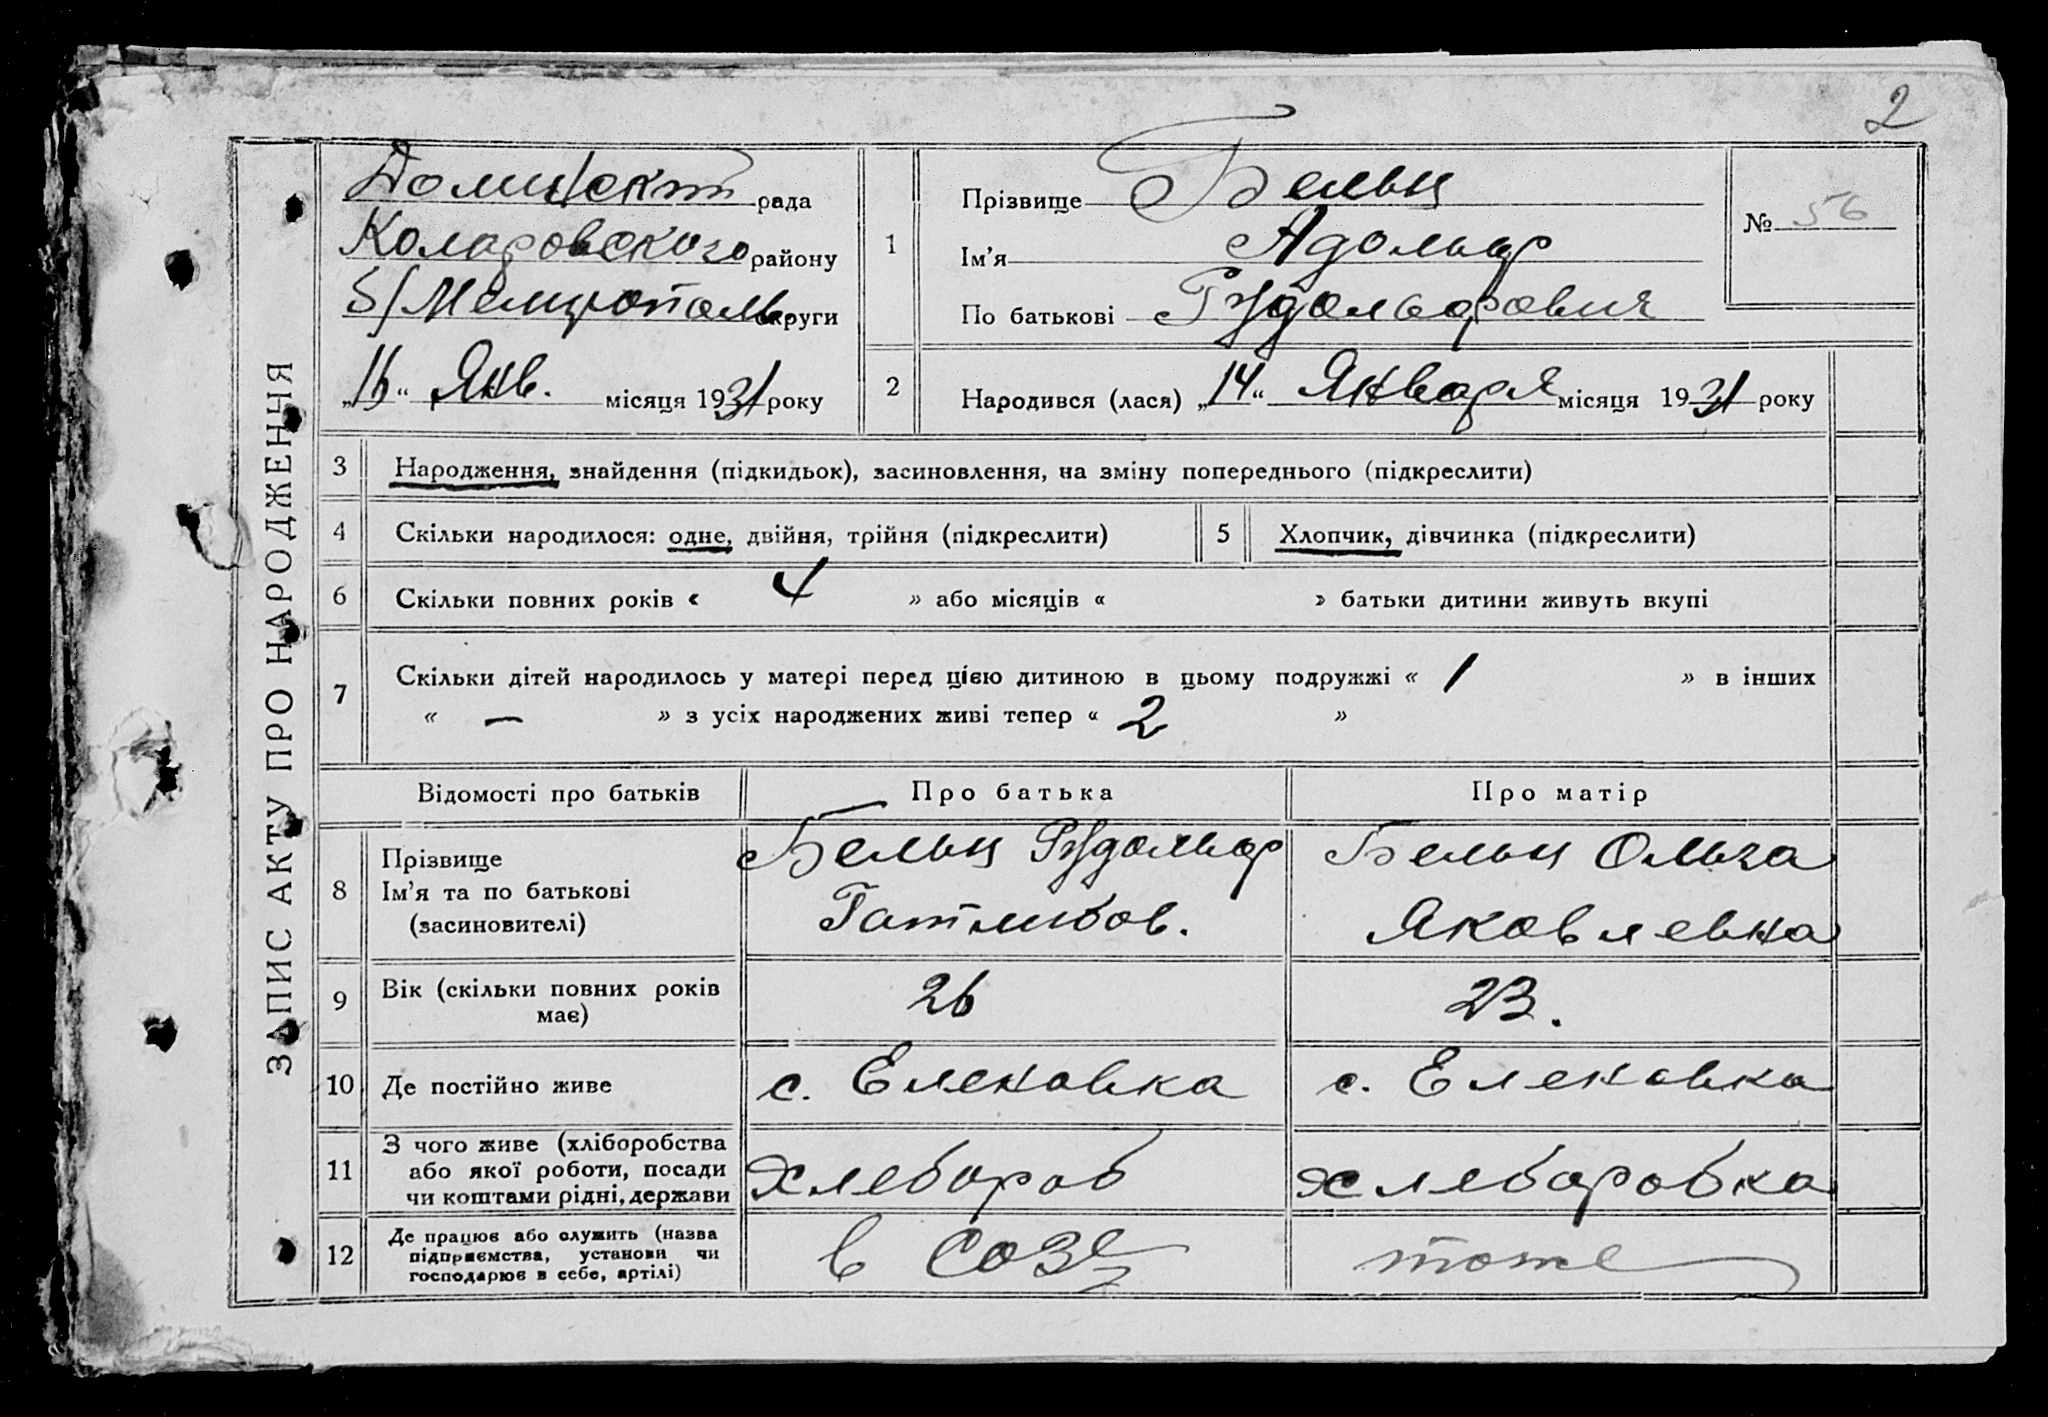 2
ЗАПИС АКТУ ПРО НАРОДЖЕННЯ
рада
Коларовского району
Б/Мелитополь округи
„16“ Янв. місяця 1931 року
1
Прізвище Бельц
Ім'я Адольф
По батькові Рудольфович
№ 56
2
Народився (лася) „14“ Января місяця 1931 року
3
Народження, знайдення (підкидьок), засиновлення, на зміну попереднього (підкреслити)
4
Скільки народилося: одне, двійня, трійня (підкреслити)
5
Хлопчик, дівчинка (підкреслити)
6
Скільки повних років « 4 » або місяців « » батьки дитини живуть вкупі
7
Скільки дітей народилось у матері перед цією дитиною в цьому подружжі « 1 » в інших
« – » з усіх народжених живі тепер « 2 »
Відомості про батьків
Про батька
Про матір
8
Прізвище
Ім'я та по батькові
(засиновителі)
Бельц Рудольф
Готлибов.
Бельц Ольга
Яковлевна
9
Вік (скільки повних років
має)
26
23.
10
Де постійно живе
с. Еленовка
с. Еленовка
11
З чого живе (хліборобства
або якої роботи, посади
чи коштами рідні, держави
Хлебороб
хлеборобка
12
Де працює або служить (назва
підприємства, установи чи
господарює в себе, артілі)
в СОЗе
тоже